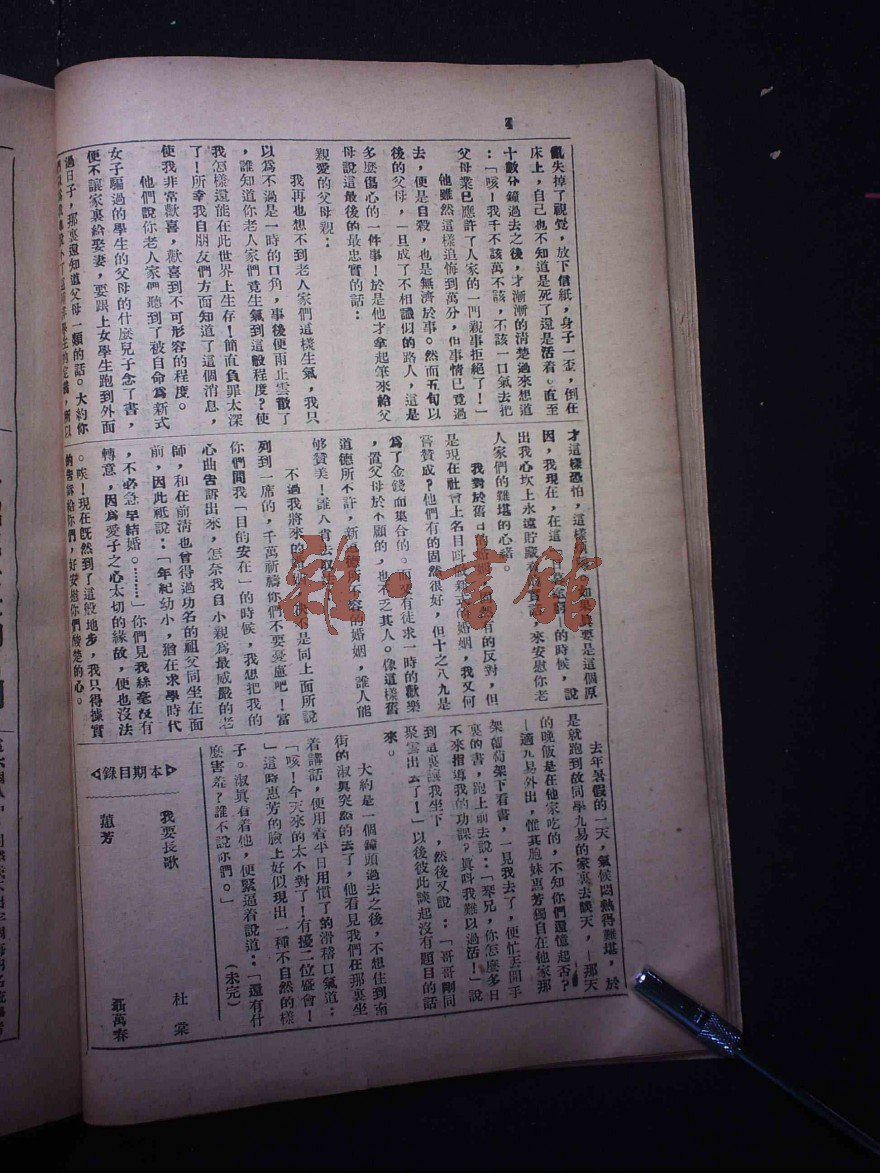 4
亂失掉了視覺，放下信紙，身子一歪，倒在
床上，自己也不知道是死了還是活着。直至
十數分鐘過去之後，才漸漸的清楚過來想道
：「咳！我千不該萬不該，不該一口氣去把
父母業已應許了人家的一門親事拒絕了！」
他雖然這樣追悔到萬分，但事情已竟過
去，便是自殺，也是無濟於事。然而五旬以
後的父母，一旦成了不相識似的路人，這是
多麽傷心的一件事！於是他才拿起筆來給父
母說這最後的最忠實的話：
親愛的父母親：
我再也想不到老人家們這樣生氣，我只
以爲不過是一時的口角，事後便雨止雲散了
，誰知道你老人家們竟生氣到這般程度？使
我怎樣還能在此世界上生存！簡直負罪太深
了！所幸我自朋友們方面知道了這個消息，
使我非常歡喜，歡喜到不可形容的程度。
他們說你老人家們聽到了被自命爲新式
女子騙過的學生的父母的什麽兒子念了書，
便不讓家裏給娶妻，要跟上女學生跑到外面
過日子，那裏還知道父母一類的話。大約你
才這樣恐怕，這樣 如果眞要是這個原
因，我現在，在這 的時候，說
出我心坎上永遠貯藏着 來安慰你老
人家們的難堪的心緒。
我對於舊 的反對，但
是現在社會上名目叫做新式的婚姻，我又何
嘗贊成？他們有的固然很好，但十之八九是
爲了金錢而集合的。而又有徒求一時的歡樂
，置父母於不顧的，也不乏其人。像這樣舊
道德所不許，新道德所不容的婚姻，誰人能
够贊美！誰人肯去取法
不過我將來的 不是同上面所說
列到一席的，千萬祈禱你們不要憂慮吧！當
你們問我「目的安在」的時候，我想把我的
心曲告訴出來，怎奈我自小視爲最威嚴的老
師，和在前淸也曾得過功名的祖父同坐在面
前，因此祇說：「年紀幼小，猶在求學時代
，不必急早結婚。………」你們見我絲毫沒有
轉意，因爲愛子之心太切的緣故，便也沒法
。唉！現在旣然到了這般地步，我只得據實
的告訴給你們，好安慰你們酸楚的心。
去年暑假的一天，氣候悶熱得難堪，於
是就跑到故同學九易的家裏去談天，—那天
的晚飯是在他家吃的，不知你們還憶起否？
—適九易外出，惟其胞妹惠芳獨自在他家那
架葡萄架下看書，一見我去了，便忙丟開手
裏的書，跑上前去說：「琹兄，你怎麽多日
不來指導我的功課？眞叫我難以過活！」說
到這裏讓我坐下，然後又說：「哥哥剛同
聚雲出去了！」以後彼此談起沒有題目的話
來。
大約是一個鐘頭過去之後，不想住到南
街的淑眞突然的去了，他看見我們在那裏坐
着講話，便用着平日用慣了的滑稽口氣道：
「咳！今天來的太不對了！有擾二位盛會！
」這時惠芳的臉上好似現出一種不自然的樣
子。淑眞有着他，便緊逼着說道：「還有什
麽害羞？誰不說你們。」
（未完）
本期目錄
我要長歌 杜棠
蒀芳 聶萬春